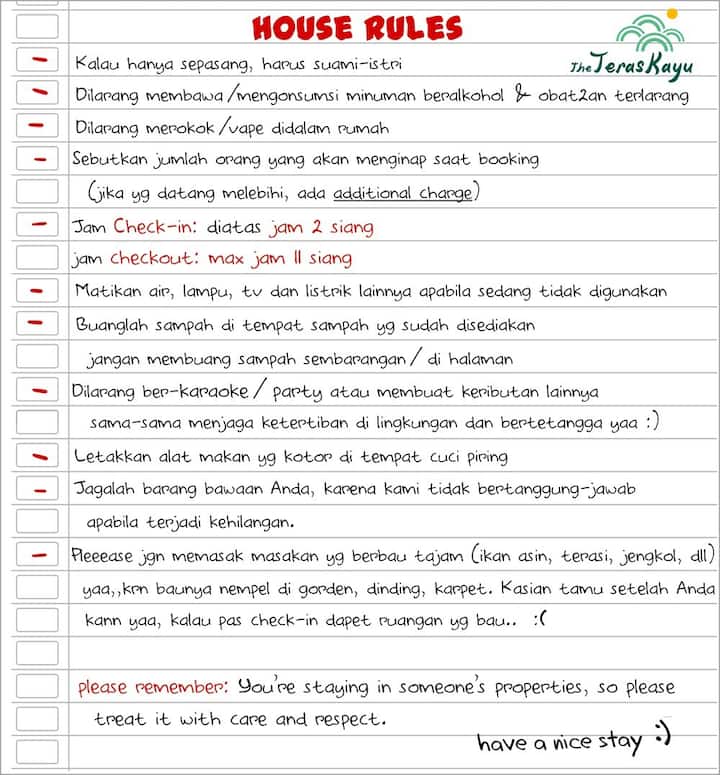 HOUSE RULES
The TerasKayu
- Kalau hanya sepasang, harus suami-istri
- Dilarang membawa/mengonsumsi minuman beralkohol & obat2an terlarang
- Dilarang merokok/vape didalam rumah
- Sebutkan jumlah orang yang akan menginap saat booking
(jika yg datang melebihi, ada additional charge)
- Jam Check-in: diatas jam 2 siang
jam checkout: max jam 11 siang
- Matikan air, lampu, tv dan listrik lainnya apabila sedang tidak digunakan
- Buanglah sampah di tempat sampah yg sudah disediakan
jangan membuang sampah sembarangan/ di halaman
- Dilarang ber-karaoke/ party atau membuat keributan lainnya
sama-sama menjaga ketertiban di lingkungan dan bertetangga yaa :)
- Letakkan alat makan yg kotor di tempat cuci piring
- Jagalah barang bawaan Anda, karena kami tidak bertanggung-jawab
apabila terjadi kehilangan.
- Pleeease jgn memasak masakan yg berbau tajam (ikan asin, terasi, jengkol, dll)
yaa,,krn baunya nempel di gorden, dinding, karpet. Kasian tamu setelah Anda
kann yaa, kalau pas check-in dapet ruangan yg bau.. :(
please remember: You're staying in someone's properties, so please
treat it with care and respect.
have a nice stay :)